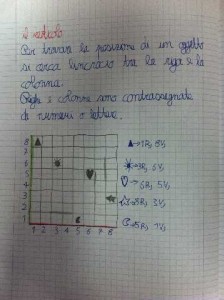 Il reticolo
Per trovare la posizione di un oggetto
si cerca l'incrocio tra la riga e la
colonna.
Righe e colonne sono contrassegnate
da numeri o lettere.
8
7
6
5
4
3
2
1
1 2 3 4 5 6 7 8
1R, 8V
3R, 6V
6R, 5V
8R, 3V
5R, 1V